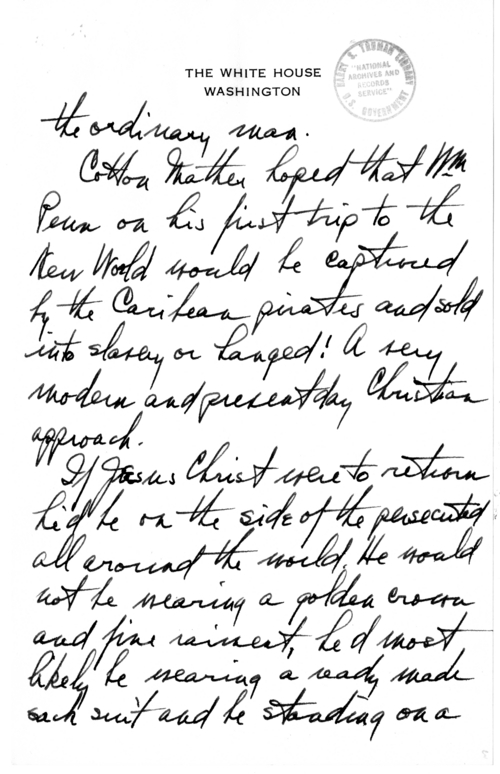 THE WHITE HOUSE
WASHINGTON
HARRY S. TRUMAN LIBRARY
"NATIONAL
ARCHIVES AND
RECORDS
SERVICE"
U.S. GOVERNMENT
the ordinary man.
Cotton Mather hoped that Wm
Penn on his first trip to the
New World would be captured
by the Caribean pirates and sold
into slavery or hanged! A very
modern and present day Christian
approach.
If Jesus Christ were to return
he'd be on the side of the persecuted
all around the world. He would
not be wearing a golden crown
and fine raiment, he'd most
likely be wearing a ready made
sack suit and be standing on a